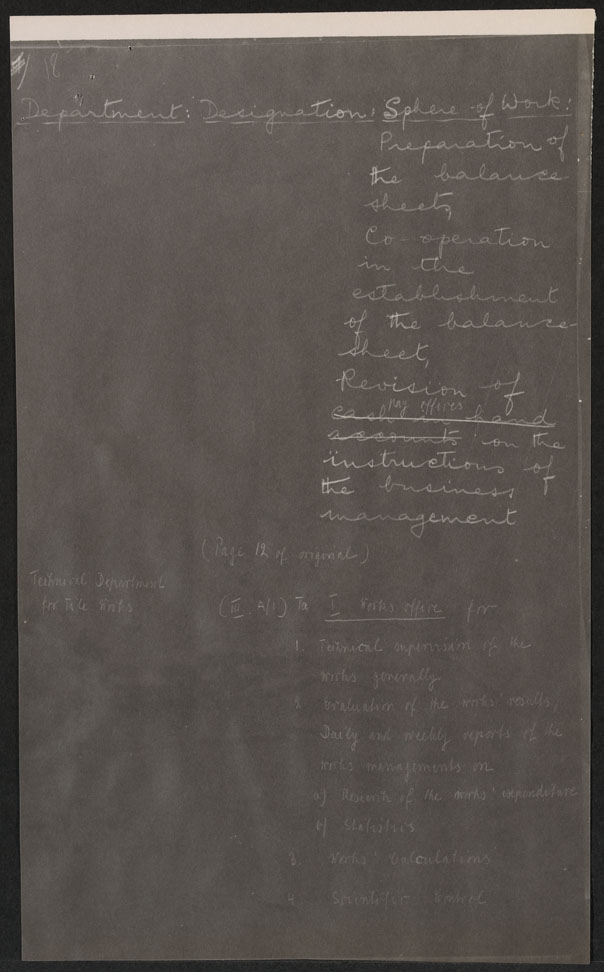 18
Department: Designation: Sphere of Work:
Preparation of
the balance
sheets,
Co-operation
in the
establishment
of the balance-
sheet,
Revision of
pay offices
cash in hand
accounts on the
instructions of
the business
management
(Page 12 of original)
Technical Department
for Works
(III A/1) Ta I Works office for
1. Technical supervision of the
works generally
2. Evaluation of the works' results,
Daily and weekly reports of the
works managements on
a) Research of the works' expenditure
b) Statistics
3. Works' Calculations
4. Scientific Control